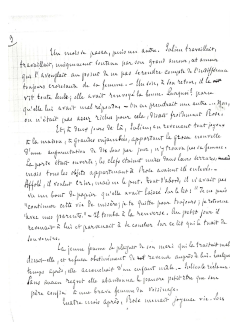 9
Un mois se passa, puis un autre. Julien travaillait,
travaillait, uniquement soutenu par son grand amour, et amour
qui l'aveuglait au point de ne pas se rendre compte de l'indifférence
toujours croissante de sa femme. Un soir, à son retour, il la
vit toute seule; elle avait renvoyé la bonne
qu'elle lui avait mal répondu. On en prendrait une autre. Non,
on n'était pas assez riche pour cela, disait froidement Rose.
Et, à deux jours de là, Julien, revenant tout joyeux
à la maison, grandes enjambées, apportant la grosse nouvelle
d'une augmentation de dix sous par jour, n'y trouva pas sa femme:
la porte était ouverte, les clefs étaient mises dans leurs serrures, mais
tous les objets appartenant à Rose avaient été enlevés.
Affolé, il voulut crier, mais ne le put. Tout d'abord, il n'avait pas
vu un bout de papier qu'elle avait laissé sur le lit: "Je ne puis
continuer cette vie de misère; je te quitte pour toujours; je retourne
avec mes parents". Il tomba à la renverse. Un
revenant à lui et parvenant à
La jeune femme se plaignit de son mari qui la traitait mal
disait-elle, et refusa obstinément de revenir auprès de lui. Quelque
temps après, elle accoucha d'un enfant mâle.
Sans aucun regret elle abandonna le pauvre petit être que son
père confia à une brave femme du voisinage.
Quatre mois après, Rose menait joyeuse vie.